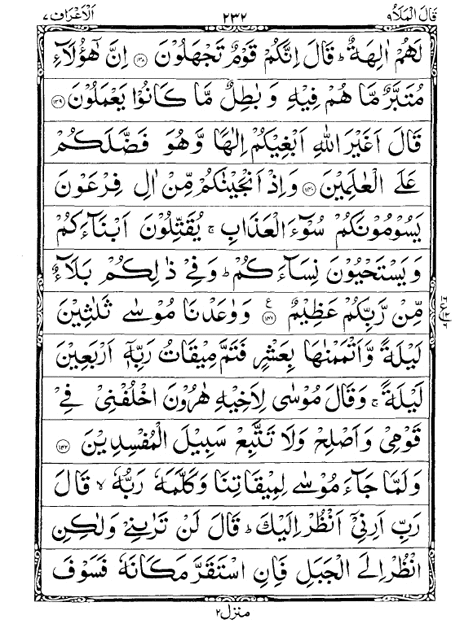 قَالَ الْمَلَاُ ۹ ۲۳۲ اَلْاَعْرَاف ۷
لَهُمْ اٰلِهَةٌ ؕ قَالَ اِنَّكُمْ قَوْمٌ تَجْهَلُوْنَ ﴿۱۳۸﴾ اِنَّ هٰۤؤُلَآءِ
مُتَبَّرٌ مَّا هُمْ فِيْهِ وَ بٰطِلٌ مَّا كَانُوْا يَعْمَلُوْنَ ﴿۱۳۹﴾
قَالَ اَغَيْرَ اللّٰهِ اَبْغِيْكُمْ اِلٰهًا وَّهُوَ فَضَّلَكُمْ
عَلَى الْعٰلَمِيْنَ ﴿۱۴۰﴾ وَاِذْ اَنْجَيْنٰكُمْ مِّنْ اٰلِ فِرْعَوْنَ
يَسُوْمُوْنَكُمْ سُوْٓءَ الْعَذَابِ ۚ يُقَتِّلُوْنَ اَبْنَآءَكُمْ
وَيَسْتَحْيُوْنَ نِسَآءَكُمْ ؕ وَفِيْ ذٰلِكُمْ بَلَآءٌ
مِّنْ رَّبِّكُمْ عَظِيْمٌ ﴿۱۴۱﴾ ع وَوٰعَدْنَا مُوْسٰى ثَلٰثِيْنَ
لَيْلَةً وَّاَتْمَمْنٰهَا بِعَشْرٍ فَتَمَّ مِيْقَاتُ رَبِّهٖۤ اَرْبَعِيْنَ
لَيْلَةً ۚ وَقَالَ مُوْسٰى لِاَخِيْهِ هٰرُوْنَ اخْلُفْنِيْ فِيْ
قَوْمِيْ وَاَصْلِحْ وَلَا تَتَّبِعْ سَبِيْلَ الْمُفْسِدِيْنَ ﴿۱۴۲﴾
وَلَمَّا جَآءَ مُوْسٰى لِمِيْقَاتِنَا وَكَلَّمَهٗ رَبُّهٗ ۙ قَالَ
رَبِّ اَرِنِيْۤ اَنْظُرْ اِلَيْكَ ؕ قَالَ لَنْ تَرٰىنِيْ وَلٰكِنِ
انْظُرْ اِلَى الْجَبَلِ فَاِنِ اسْتَقَرَّ مَكَانَهٗ فَسَوْفَ
منزل ۲